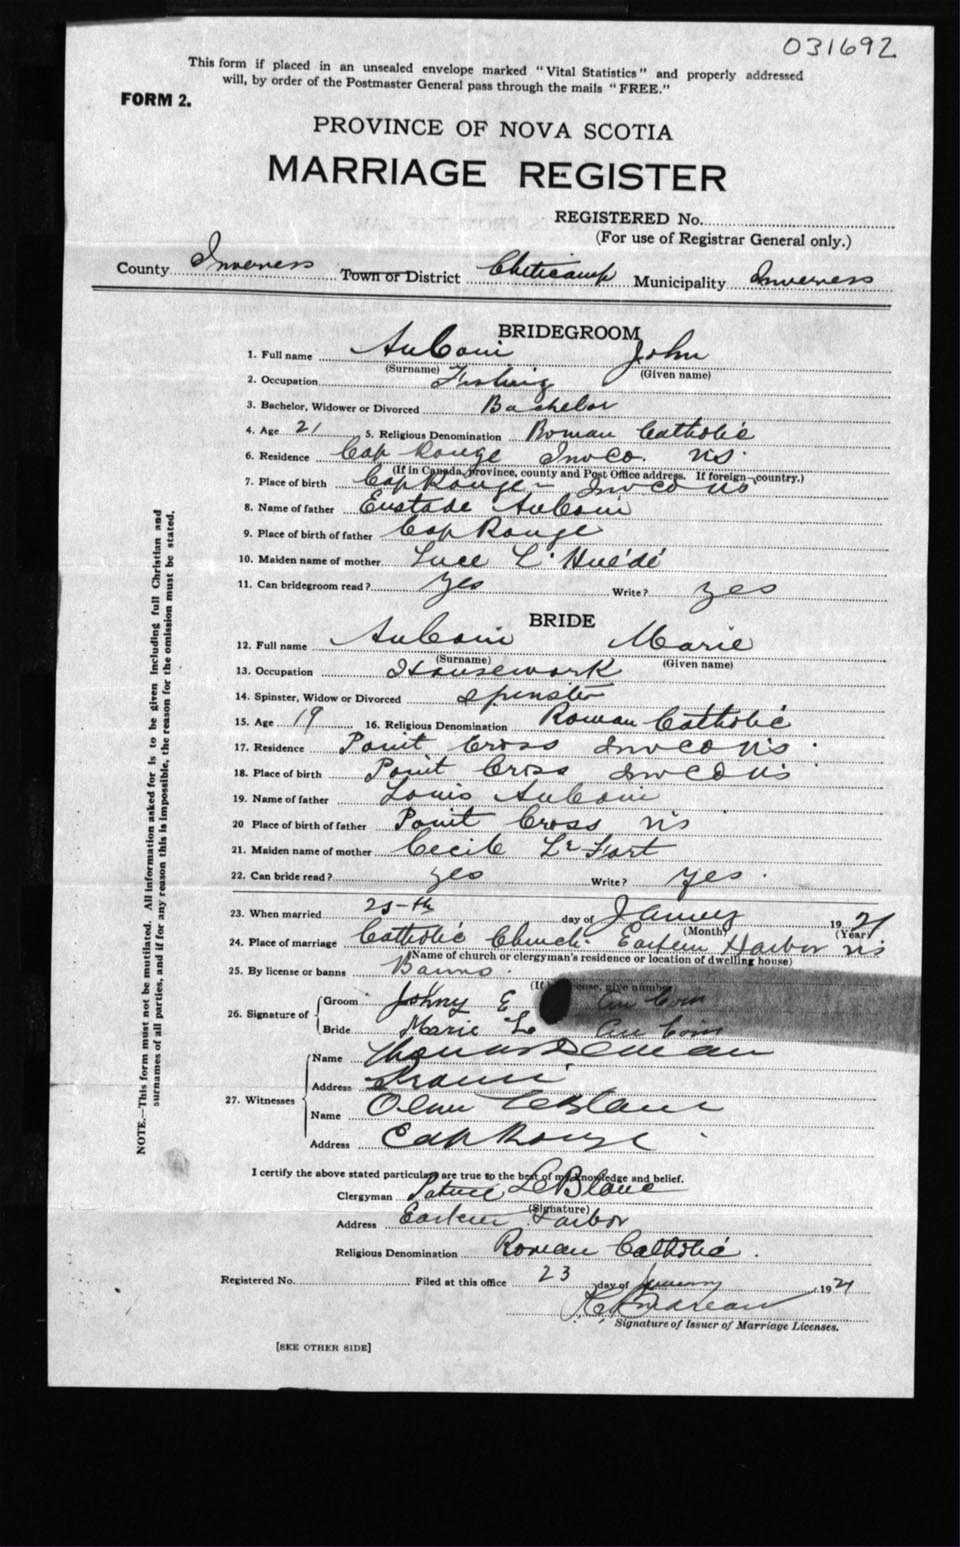 031692
This form if placed in an unsealed envelope marked "Vital Statistics" and properly addressed
will, by order of the Postmaster General pass through the mails "FREE."
FORM 2.
PROVINCE OF NOVA SCOTIA
MARRIAGE REGISTER
REGISTERED No.
(For use of Registrar General only.)
County Inverness Town or District Cheticamp Municipality Inverness
BRIDEGROOM
1. Full name AuCoin John
(Surname) (Given name)
2. Occupation Fishing
3. Bachelor, Widower or Divorced Bachelor
4. Age 21 5. Religious Denomination Roman Catholic
6. Residence Cap Rouge Inv Co. NS.
(If in Canada, province, county and Post Office address. If foreign—country.)
7. Place of birth Cap Rouge Inv Co NS
8. Name of father Eustade AuCoin
9. Place of birth of father Cap Rouge
10. Maiden name of mother Luce
11. Can bridegroom read? Yes Write? Yes
BRIDE
12. Full name AuCoin Marie
(Surname) (Given name)
13. Occupation Housework
14. Spinster, Widow or Divorced Spinster
15. Age 19 16. Religious Denomination Roman Catholic
17. Residence Point Cross Inv Co NS.
18. Place of birth Point Cross Inv Co NS
19. Name of father Louis AuCoin
20 Place of birth of father Point Cross NS
21. Maiden name of mother Cecile Le Fort
22. Can bride read? yes Write? yes.
23. When married 25-th day of 1921
(Month) (Year)
24. Place of marriage Catholic Church Eastern Harbor NS
(Name of church or clergyman's residence or location of dwelling house)
25. By license or banns Banns.
(If license, give number)
26. Signature of Groom Johny E AuCoin
Bride Marie L AuCoin
27. Witnesses
Name
Address
Name LeBlanc
Address Cap Rouge
NOTE.—This form must not be mutilated. All information asked for is to be given including full Christian and
surnames of all parties, and if for any reason this is impossible, the reason for the omission must be stated.
I certify the above stated particulars are true to the best of my knowledge and belief.
Clergyman LeBlanc
(Signature)
Address Eastern Harbor
Religious Denomination Roman Catholic.
Registered No. Filed at this office 23 day of January 1921
Signature of Issuer of Marriage Licenses.
[SEE OTHER SIDE]